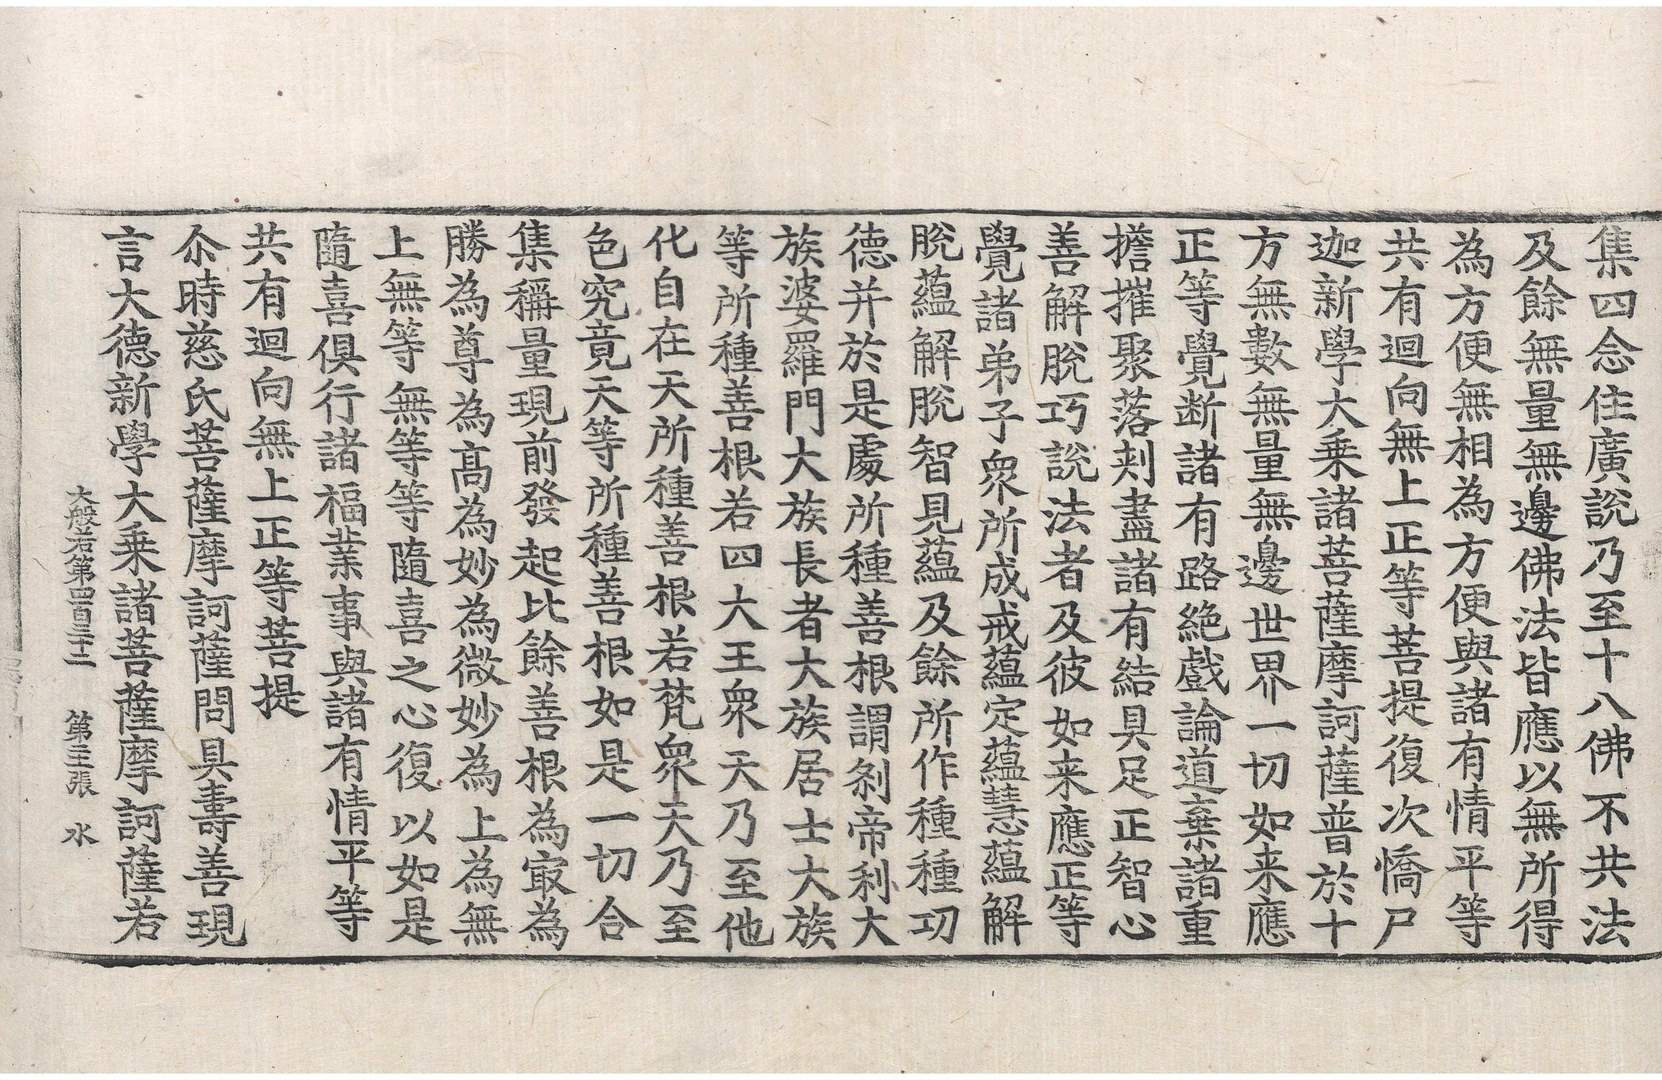 集四念住廣說乃至十八佛不共法
及餘無量無邊佛法皆應以無所得
為方便無相為方便與諸有情平等
共有迴向無上正等菩提復次憍尸
迦新學大乗諸菩薩摩訶薩普於十
方無數無量無邊世界一切如来應
正等覺断諸有路絶戲論道棄諸重
擔摧聚落刾盡諸有結具足正智心
善解脫巧說法者及彼如来應正等
覺諸弟子衆所成戒蘊定蘊慧蘊解
脫蘊解脫智見蘊及餘所作種種功
德并於是處所種善根謂刹帝利大
族婆羅門大族長者大族居士大族
等所種善根若四大王衆天乃至他
化自在天所種善根若梵衆天乃至
色究竟天等所種善根如是一切合
集稱量現前發起比餘善根為㝡為
勝為尊為髙為妙為微妙為上為無
上無等無等等隨喜之心復以如是
隨喜俱行諸福業事與諸有情平等
共有迴向無上正等菩提
尒時慈氏菩薩摩訶薩問具壽善現
言大德新學大乗諸菩薩摩訶薩若
大般若第四百三十二 第三張 水